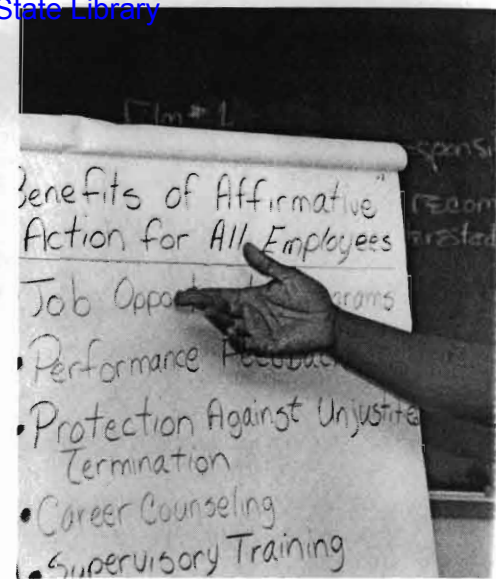 State Library
Film #1
Benefits of Affirmative"
Action for All Employees
Job
• Performance
• Protection Against
Termination
• Career Counseling
• Supervisory Training